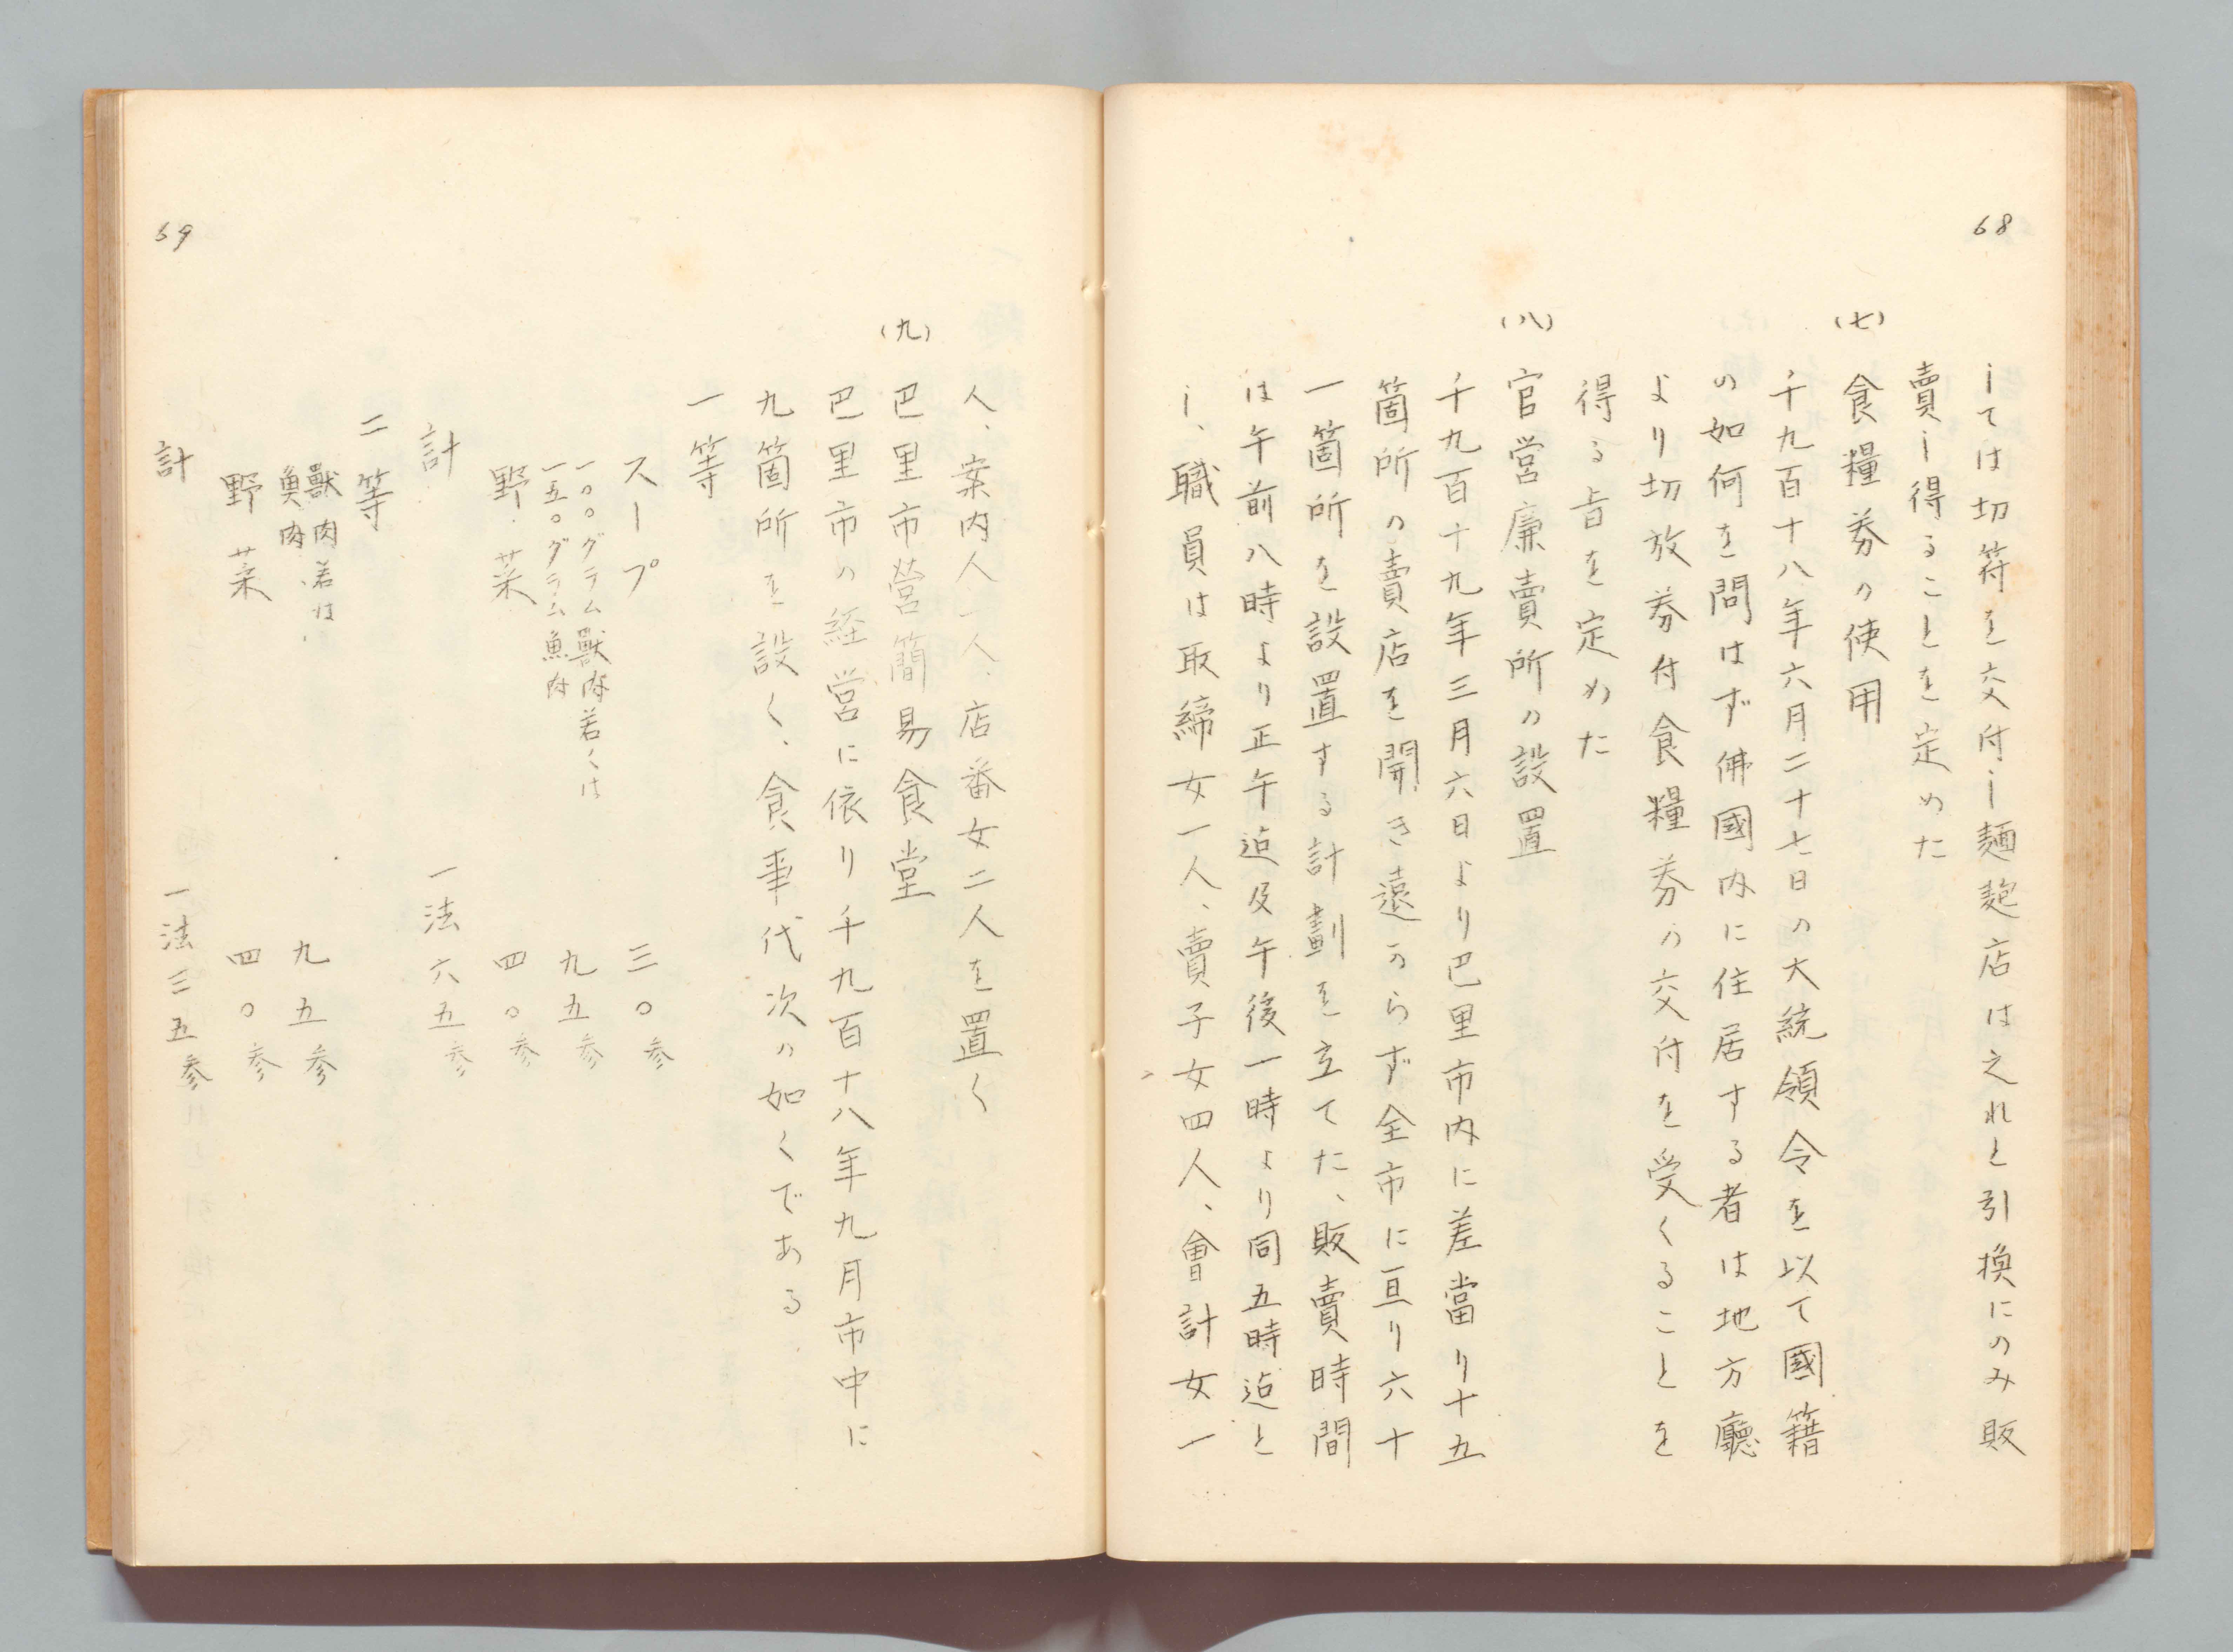 68
しては切符を交付し麺麭店は之れと引換にのみ販
賣し得ることを定めた
(七)
食糧券の使用
千九百十八年六月二十七日の大統領令を以て國籍
の如何を問はず佛國内に住居する者は地方廳
より切放券付食糧券の交付を受くることを
得る旨を定めた
(八)
官営廉賣所の設置
千九百十九年三月六日より巴里市内に差當り十五
箇所の賣店を開き遠からず全市に亘り六十
一箇所を設置する計劃を立てた、販賣時間
は午前八時より正午迠及午後一時より同五時迠と
し、職員は取締女一人、賣子女四人、會計女一
69
人、案内人一人、店番女二人を置く
(九)
巴里市営簡易食堂
巴里市の経営に依り千九百十八年九月市中に
九箇所を設く、食事代次の如くである
一等
スープ 三〇参
一〇〇グラム獸肉若くは
一五〇グラム魚肉 九五参
野菜 四〇参
計 一法六五参
二等
獸肉若は
魚肉 九五参
野菜 四〇参
計 一法三五参